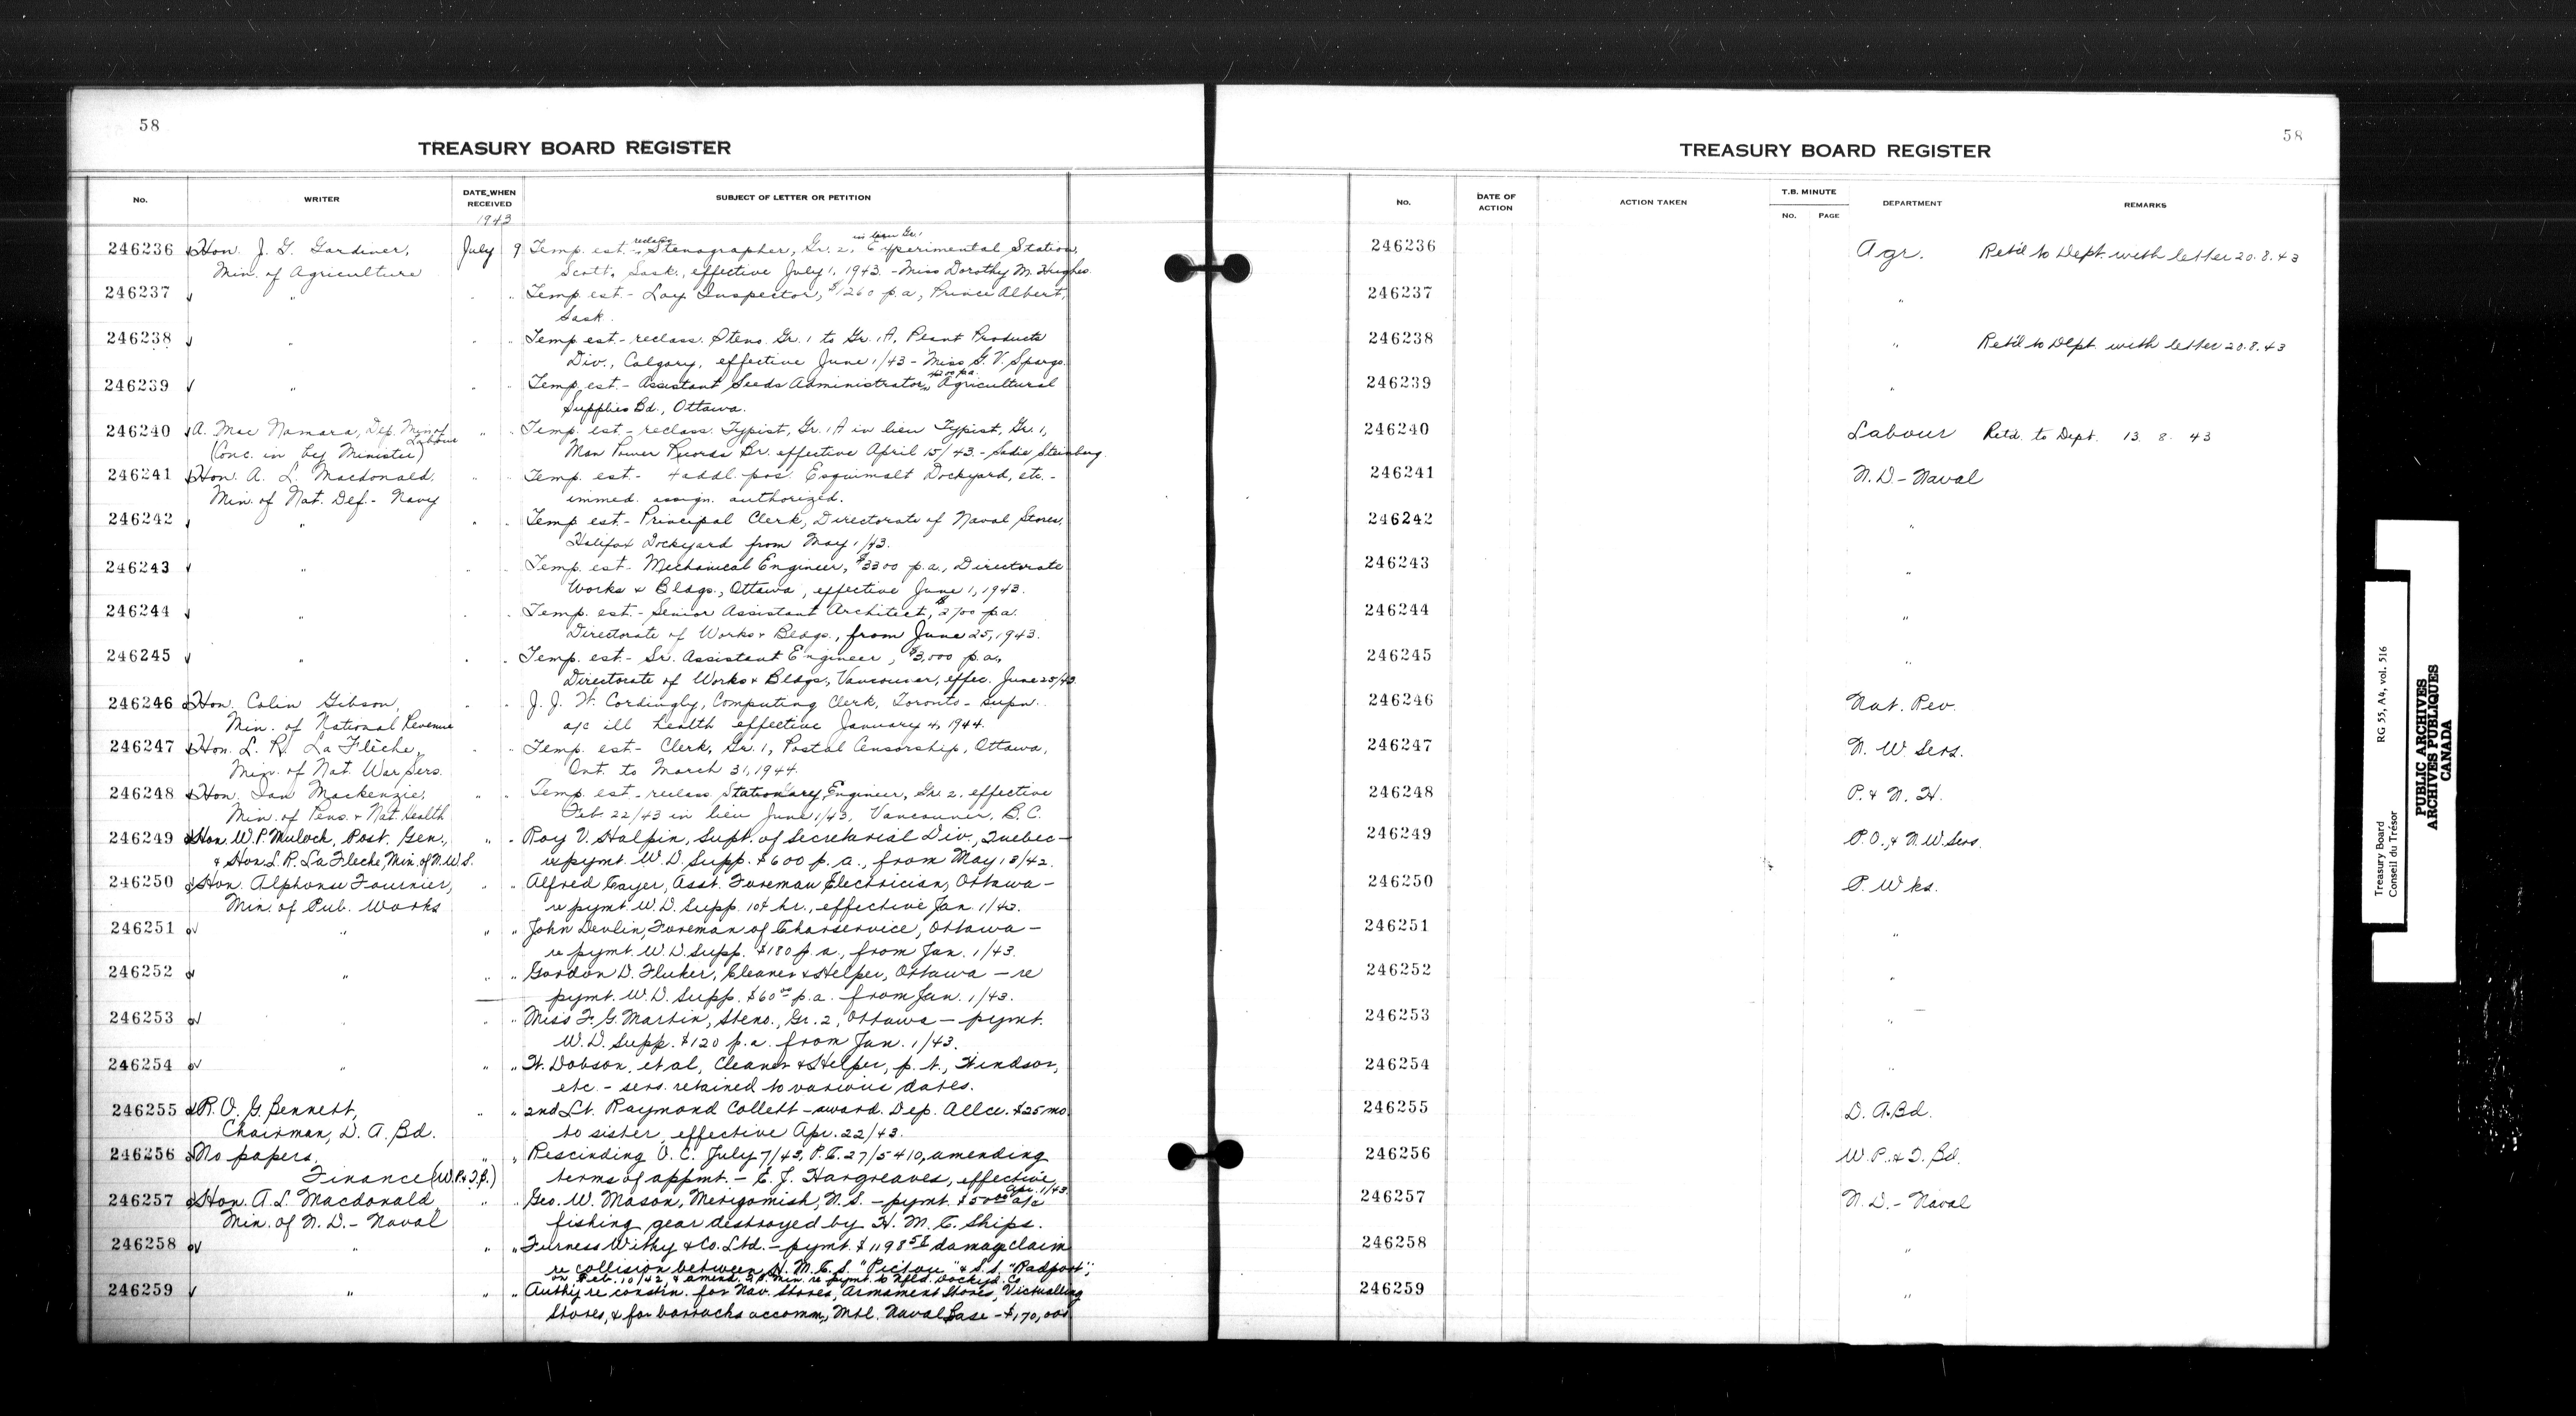 58
TREASURY BOARD REGISTER
No.
WRITER
DATE WHEN RECEIVED
SUBJECT OF LETTER OR PETITION
1943
246236 Hon. J. G. Gardiner, July 9 Temp. est. - reclass. Stenographer, Gr. 2, in lieu Gr. 1 Experimental Station,
Min. of Agriculture Scott, Sask., effective July 1, 1943. - Miss Dorothy M. Hughes.
246237 " " " Temp. est. - Inspector, $1260 p.a., Prince Albert,
Sask.
246238 " " " Temp. est. - reclass. Steno. Gr. 1 to Gr. 1A, Plant Products
Div., Calgary, effective June 1/43 - Miss G. V. Spargo.
246239 " " " Temp. est. - Assistant Seeds Administrator, Agricultural
Supplies Bd., Ottawa.
246240 A. MacNamara, Dep. Min of Labour " " Temp. est. - reclass. Typist, Gr. 1A in lieu Typist, Gr. 1,
(Conc. in by Minister) Man Power Records Br. effective April 15/43. - Sadie Steinberg.
246241 Hon. A. L. Macdonald, " " Temp. est. - 4 addl. pos. Esquimalt Dockyard, etc. -
Min. of Nat. Def. - Navy immed. assign. authorized.
246242 " " " Temp. est. - Principal Clerk, Directorate of Naval Stores,
Halifax Dockyard from May 1/43.
246243 " " " Temp. est. - Mechanical Engineer, $3300 p.a., Directorate
Works & Bldgs., Ottawa, effective June 1, 1943.
246244 " " " Temp. est. - Senior Assistant Architect, $2700 p.a.
Directorate of Works & Bldgs., from June 25, 1943.
246245 " " " Temp. est. - Sr. Assistant Engineer, $3,000 p.a.,
Directorate of Works & Bldgs, Vancouver, effec. June 25/43.
246246 Hon. Colin Gibson, " " J. J. W. Cordingly, Computing Clerk, Toronto - Supn.
Min. of National Revenue a/c ill health effective January 4, 1944.
246247 Hon. L. R. La Flèche, " " Temp. est. - Clerk, Gr. 1, Postal Censorship, Ottawa,
Min. of Nat. War Sers. Ont. to March 31, 1944.
246248 Hon. Ian Mackenzie, " " Temp. est. - reclass Stationary Engineer, Gr. 2. effective
Min. of Pens. & Nat. Health Feb. 22/43 in lieu June 1/43, Vancouver, B.C.
246249 Hon. W. P. Mulock, Post. Gen., " " Roy V. Halpin, Supt. of Secretarial Div., Quebec -
& Hon. L. R. La Fleche, Min. of N.W.S. re pymt. W. D. Supp. $600 p. a., from May 18/42.
246250 Hon. Alphonse Fournier, " " Alfred Gayer, Asst. Foreman Electrician, Ottawa -
Min. of Pub. Works re pymt. W. D. Supp. 10¢ hr., effective Jan. 1/43.
246251 " " " John Devlin, Foreman of Charservice, Ottawa -
re pymt. W. D. Supp. $180 p. a., from Jan. 1/43.
246252 " " " Gordon D. Fluker, Cleaner & Helper, Ottawa - re
pymt. W. D. Supp. $60.00 p. a. from Jan. 1/43.
246253 " " " Miss F. G. Martin, Steno., Gr. 2, Ottawa - pymt.
W. D. Supp. $120 p. a. from Jan. 1/43.
246254 " " " H. Dobson, et al, Cleaner & Helper, p. t., Windsor,
etc. - sers. retained to various dates.
246255 R. O. G. Bennett, " " 2nd Lt. Raymond Collett - award. Dep. Allce. $25 mo.
Chairman, D. A. Bd. to sister, effective Apr. 22/43.
246256 No papers. " " Rescinding O. C. July 7/43, P.C. 27/5410, amending
Finance (W.P. & T.B.) terms of appmt. - E. J. Hargreaves, effective Apr. 1/43.
246257 Hon. A. L. Macdonald " " Geo. W. Mason, Merigomish, N. S. - pymt. $50.00 a/c
Min. of N. D. - Naval fishing gear destroyed by H. M. C. Ships.
246258 " " " Furness Withy & Co. Ltd. - pymt. $1198.58 damage claim
re collision between H. M. C. S. "Pictou" & S. S. "Radport",
on Feb. 10/42, & amend. T.B. Min. re pymt. to Nfld. Dockyd. Co.
246259 " " " Authy re constn. for Nav. Stores, Armament Stores, Victualling
Stores, & for barracks accomm., Mtl. Naval Base - $170,000
58
TREASURY BOARD REGISTER
No.
DATE OF ACTION
ACTION TAKEN
T.B. MINUTE
No. PAGE
DEPARTMENT
REMARKS
246236 Agr. Ret'd to Dept. with letter 20.8.43
246237 "
246238 " Ret'd to Dept. with letter 20.8.43
246239 "
246240 Labour Retd. to Dept. 13. 8. 43
246241 N. D. - Naval
246242 "
246243 "
246244 "
246245 "
246246 Nat. Rev.
246247 N. W. Sers.
246248 P. & N. H.
246249 P. O., & N. W. Sers.
246250 P. Wks.
246251 "
246252 "
246253 "
246254 "
246255 D. A. Bd.
246256 W. P. & T. Bd.
246257 N. D. - Naval
246258 "
246259 "
Treasury Board RG 55, A4, vol. 516
Conseil du Trésor
PUBLIC ARCHIVES
ARCHIVES PUBLIQUES
CANADA